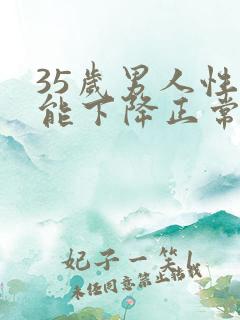 35歲男人性
能下降正常
妃子一笑1
未经同意禁止转载